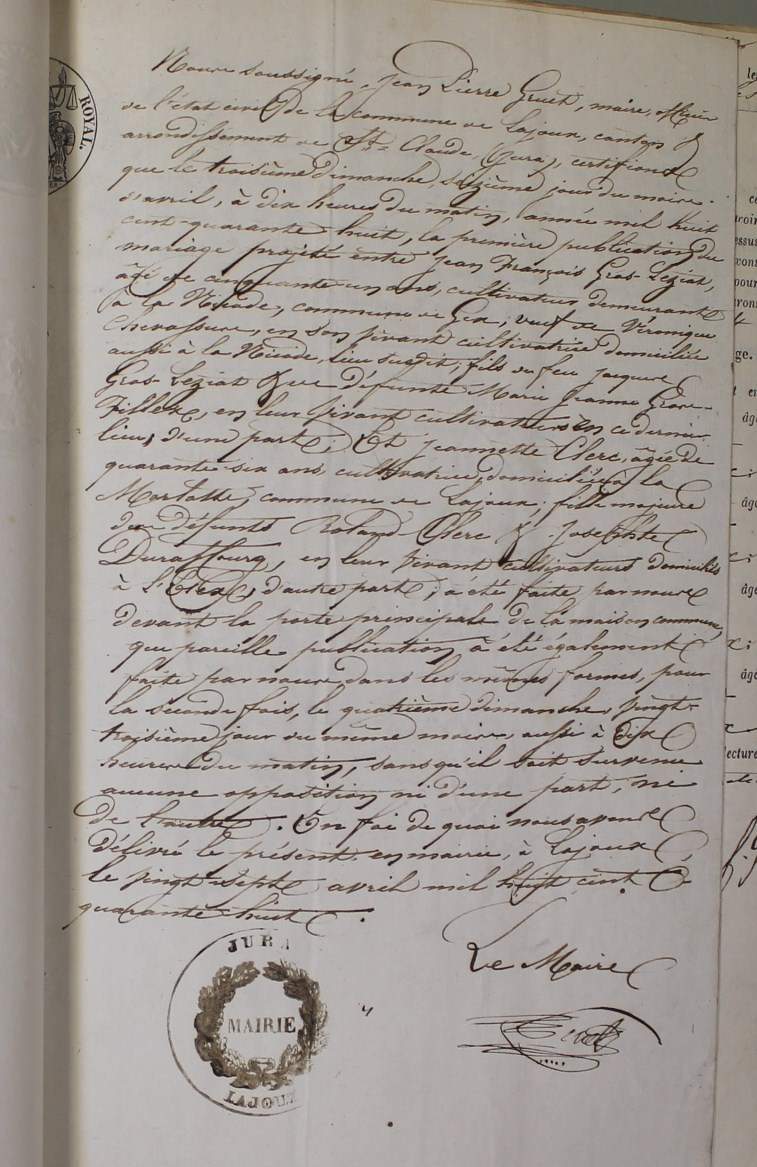 ROYAL.
Nous soussigné, Jean Pierre Gruet, maire, officier
de l'état civil de la commune de Lajoux, canton &
arrondissement de St. Claude (Jura), certifions
que le troisième dimanche, seizième jour du mois
d'avril, à dix heures du matin, année mil huit
cent quarante huit, la première publication du
mariage projeté entre Jean François Gros-Leziat,
âgé de cinquante un ans, cultivateur demeurant
à la commune de Gex, veuf de Véronique
Chevassus, en son vivant cultivatrice domiciliée
aussi à la lieu susdit, fils de feu Jacques
Gros-Leziat & de défunte Marie Jeanne Gros-
en leur vivant cultivateurs en ce dernier
lieu, d'une part; Et Jeannette Clerc, âgée de
quarante-six ans, cultivatrice, domiciliée à la
commune de Lajoux, fille majeure
des défunts Roland Clerc & Josephte
Duraffourg, en leur vivant cultivateurs domiciliés
à d'autre part; a été faite par nous
devant la porte principale de la maison commune,
que pareille publication a été également
faite par nous dans les mêmes formes, pour
la seconde fois, le quatrième dimanche, vingt-
troisième jour du même mois, aussi à dix
heures du matin, sans qu'il soit survenu
aucune opposition ni d'une part, ni
de l'autre. En foi de quoi nous avons
délivré le présent en mairie, à Lajoux
le vingt sept avril mil huit cent
quarante huit.
Le Maire
Gruet
JURA
MAIRIE
LAJOUX